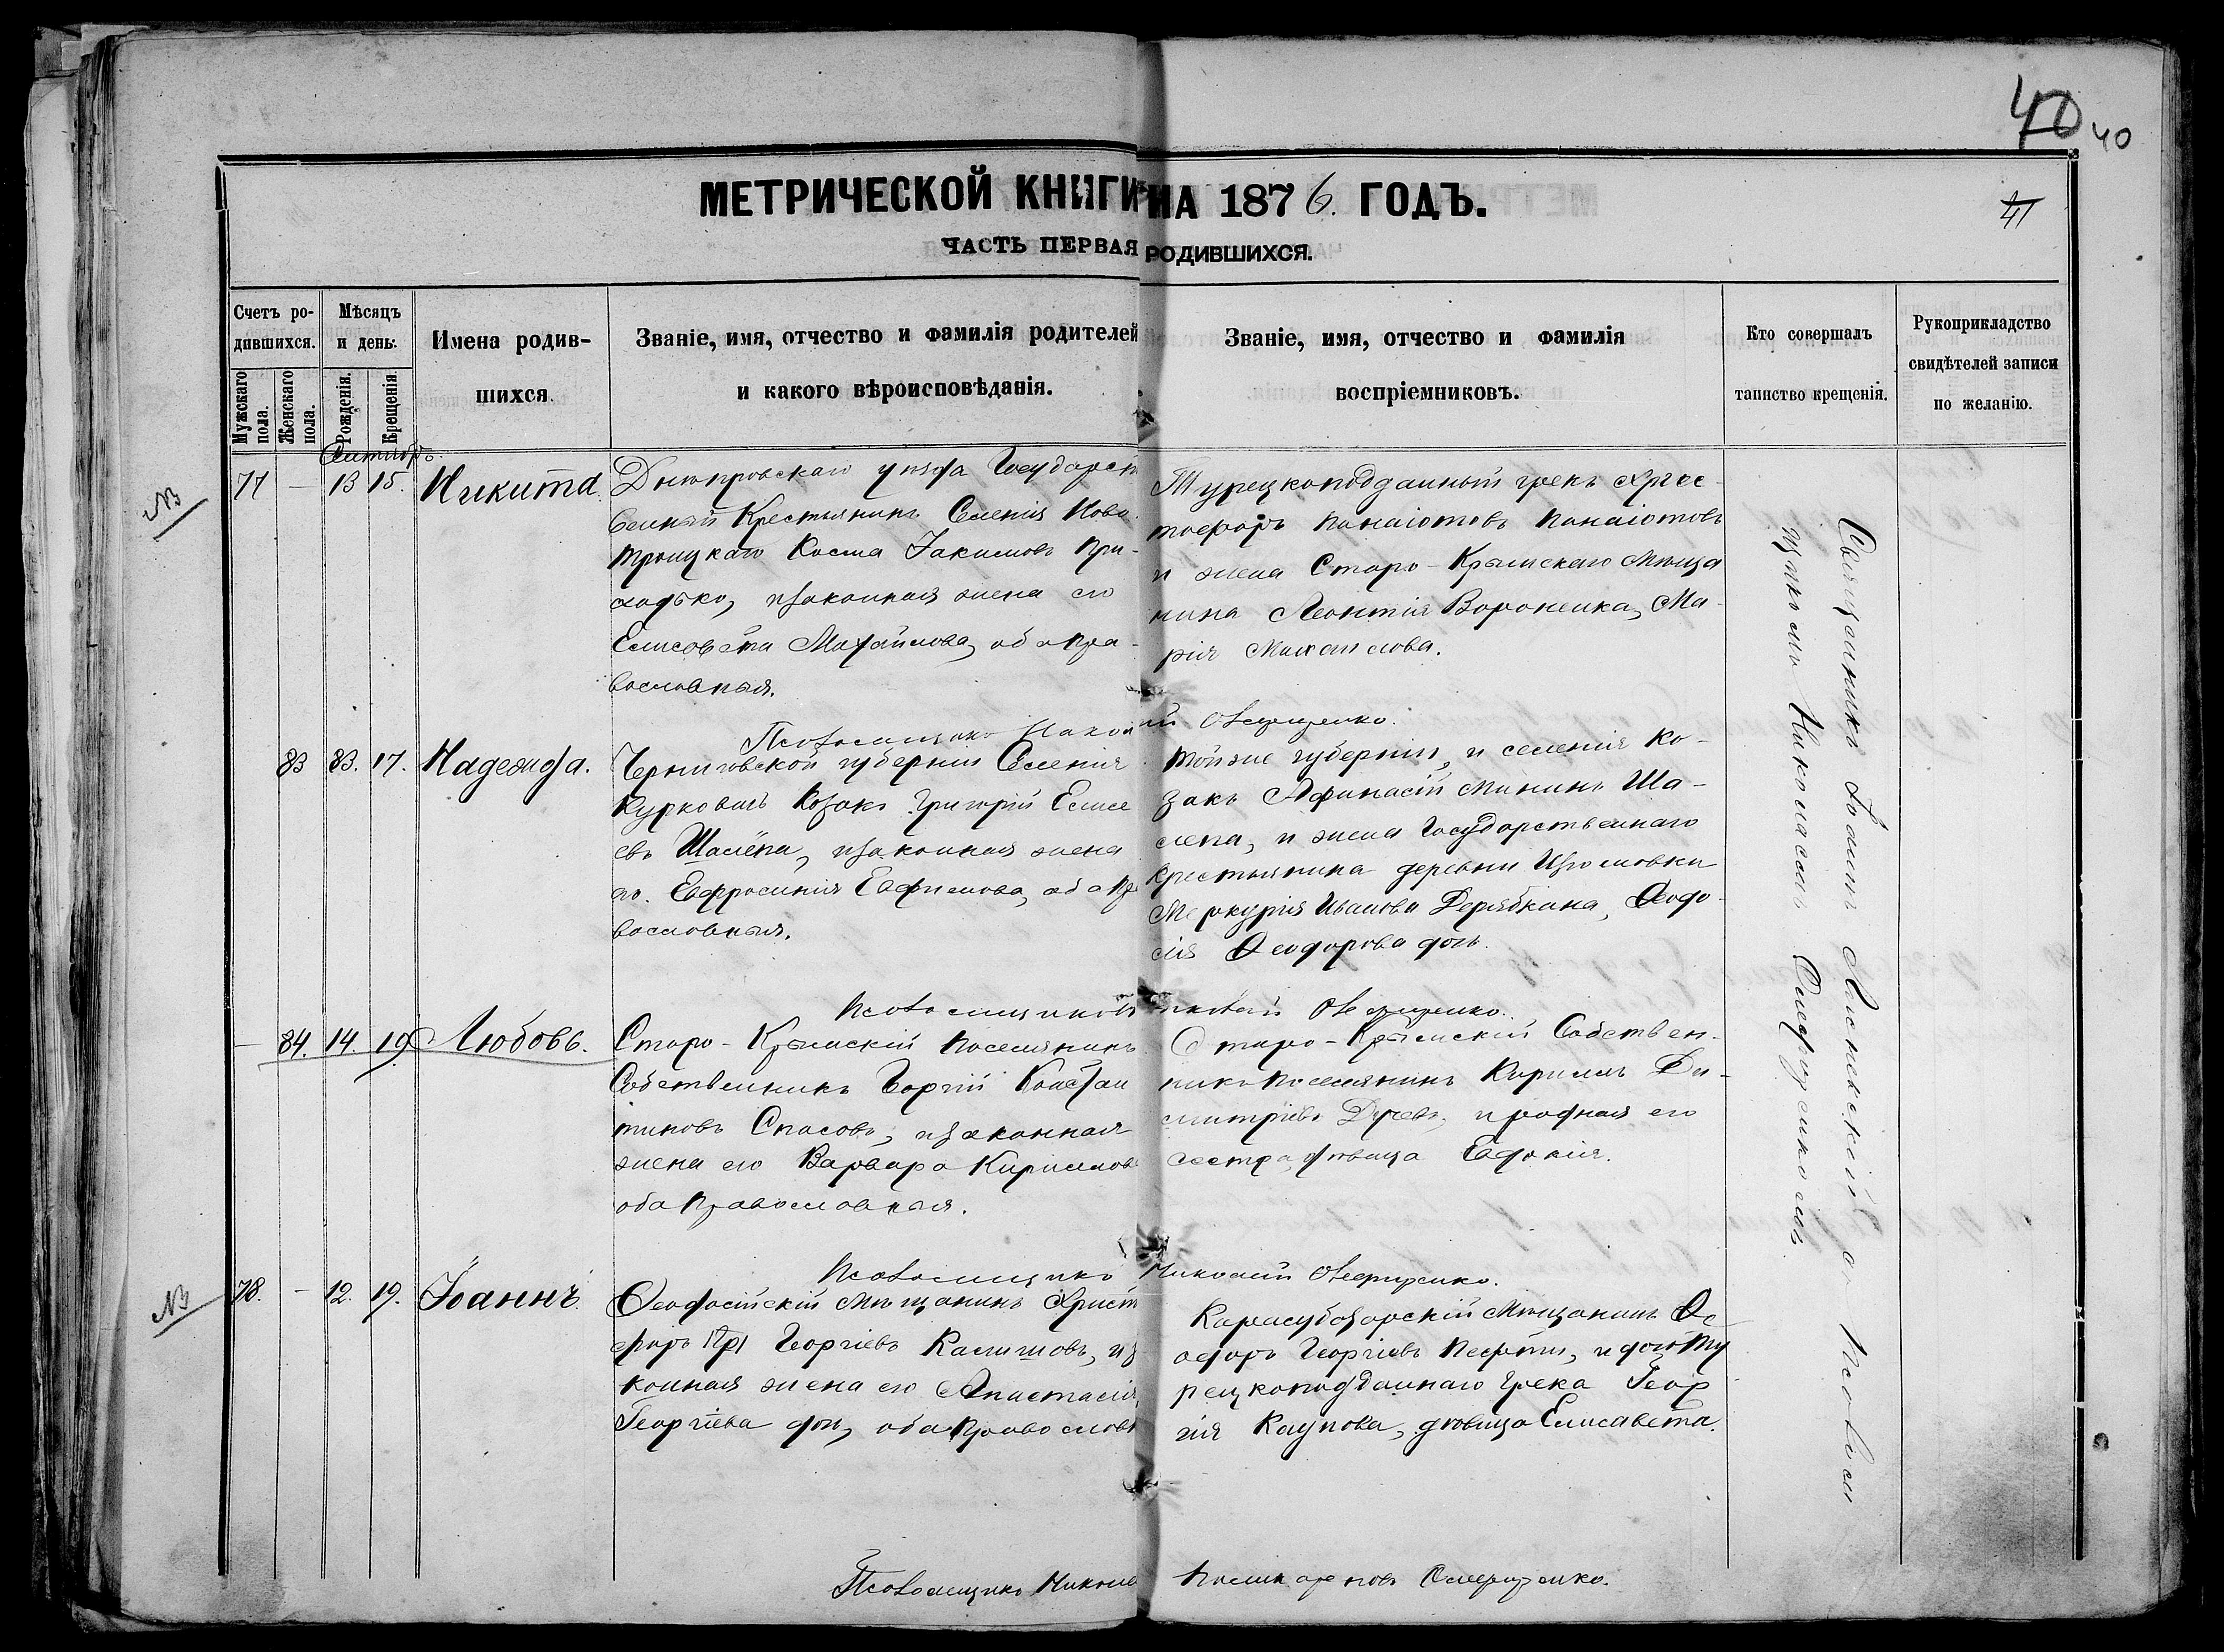 40 40
МЕТРИЧЕСКОЙ КНИГИ НА 1876. ГОДЪ.
41
ЧАСТЬ ПЕРВАЯ РОДИВШИХСЯ.
Счетъ ро-
дившихся.
Мужскаго пола.
Женскаго пола.
Мѣсяцъ
и день.
Рожденія.
Крещенія.
Имена родив-
шихся.
Званіе, имя, отчество и фамилія родителей
и какого вѣроисповѣданія.
Званіе, имя, отчество и фамилія
воспріемниковъ.
Кто совершалъ
таинство крещенія.
Рукоприкладство
свидѣтелей записи
по желанію.
Сентябрь.
NB
77 — 13 15. Никита.
Днѣпровскаго уѣзда Государст
венный Крестьянинъ Селенія Ново
троицкаго Косма Іакимовъ При-
ходько, и законная жена его
Елисавета Михайлова, оба пра-
вославныя.
Турецкоподданный грекъ Хрис-
тофоръ Панаіотовъ Панаіотовъ
и жена Старо-Крымскаго Мѣща
нина Леонтія Вороненка, Ма-
рія Михайлова.
Псаломщикъ
83 83. 17. Надежда.
Черниговской губерніи Селенія
Курковичъ Козакъ Григорій Елисе
евъ Шалёпа, и законная жена
его Евфросинія Евфимова, оба пра
вославныя.
тойже губерніи, и селенія Ко-
закъ Афанасій Мининъ Ша-
лепа, и жена Государственнаго
крестьянина деревни Изюмовки
Меркурія Иванова Дерябкина, Ѳеодо-
сія Ѳеодорова дочь.
Псаломщикъ
— 84. 14. 19. Любовь.
Старо-Крымскій Поселянинъ
Собственникъ Георгій Констан
тиновъ Спасовъ, и законная
жена его Варвара Кириллова
оба Православныя.
Старо-Крымскій Собствен-
никъ Поселянинъ Кириллъ Ди-
митріевъ и родная его
сестра, дѣвица Евдокія.
Псаломщикъ Николай
NB
78. — 12. 19. Іоаннъ.
Ѳеодосійскій Мѣщанинъ Христ
форъ Георгіевъ и за
конная жена его Анастасія
Георгіева дочь, оба Православн
Карасубазарскій Мѣщанинъ Ѳе
одоръ Георгіевъ и дочь Ту
рецкоподданнаго Грека Геор
гія дѣвица Елисавета.
Псаломщикъ Николай
Священникъ Іоаннъ съ Псалом
щикомъ Николаемъ